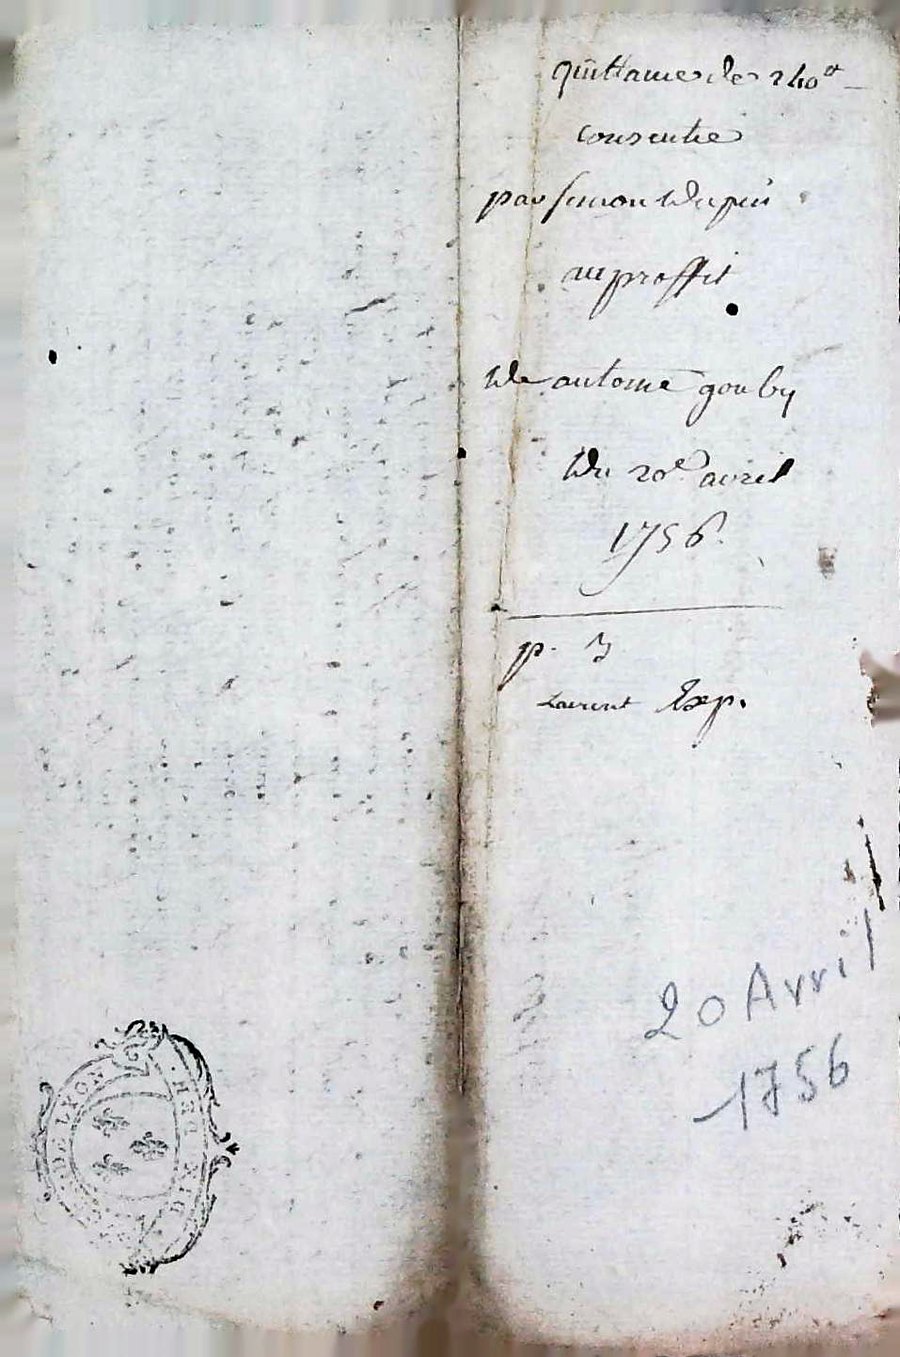 quittance de 240#
consentie
par simon dupin
au proffit
de antoine gouby
du 20e avril
1756.
p. 3
Laurent Exp.
20 Avril
1756
DE LYON
DIX DEN.